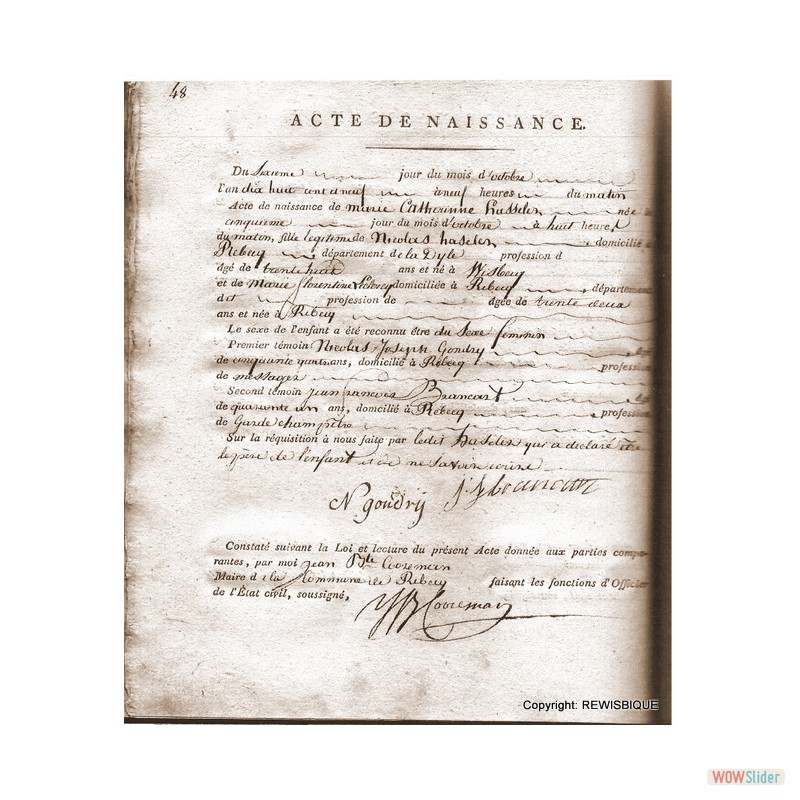 48
ACTE DE NAISSANCE.
Du Sixieme jour du mois d'octobre
l'an dix huit cent et neuf à neuf heures du matin
Acte de naissance de marie Catherinne hasselen née
cinquieme jour du mois d'octobre à huit heures
du matin, fille legitime de Nicolas haselen domicilié
Rebecq département de la Dyle profession d
âgé de trente huit ans et né à Wisbecq
et de Marie florentine domiciliée à Rebecq département
dit profession de âgée de trente deux
ans et née à Rebecq
Le sexe de l'enfant a été reconnu être du Sexe feminin
Premier témoin Nicolas Joseph Gondry
de cinquante ans, domicilié à Rebecq profession
de messager
Second témoin jean francois Brancart
de quarante un ans, domicilié à Rebecq profession
de Garde champêtre
Sur la réquisition à nous faite par ledit hasselen qui a déclaré être
le père de l'enfant et de ne savoir ecrire
N goudrÿ j f brancart
Constaté suivant la Loi et lecture du présent Acte donnée aux parties compa-
rantes, par moi jean Bte Cooreman
Maire d la Commune de Rebecq faisant les fonctions d'Officier
de l'État civil, soussigné, JB Cooreman
Copyright: REWISBIQUE
WOWSlider